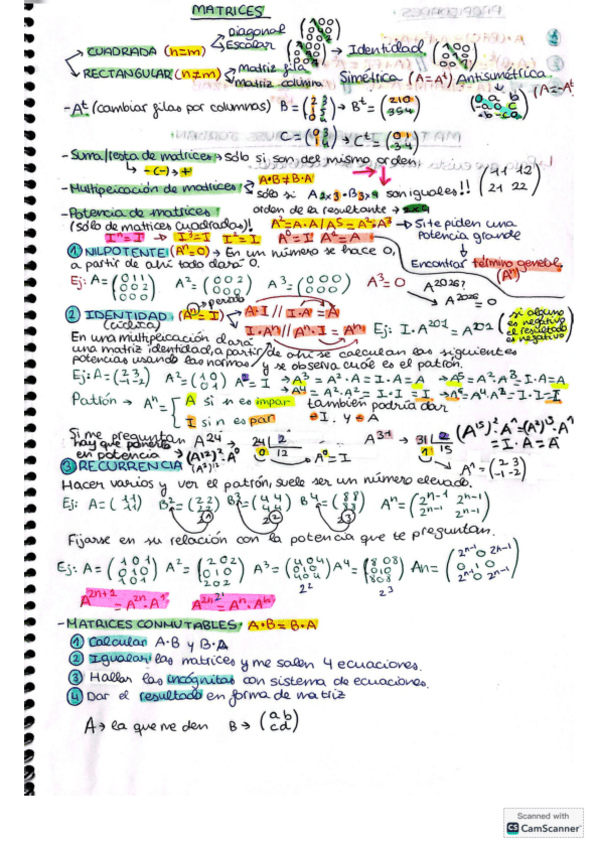 MATRICES
- CUADRADA (n=m) Diagonal Escalar → Identidad
- RECTANGULAR (n≠m) Matriz fila Matriz columna Simétrica (A=Aᵗ) Antisimétrica (A=-Aᵗ)
-Aᵗ (cambiar filas por columnas) B = → Bᵗ = (210 354)
C = → Cᵗ =
-Suma/resta de matrices → sólo si son del mismo orden.
-(-) → +
A·B≠B·A
-Multiplicación de matrices sólo si A2x3 · B3x4 son iguales!! (11 12 21 22)
-Potencia de matrices: orden de la resultante → 2x4
(sólo de matrices cuadradas)! A²=A·A / A⁵=A²·A³ → Si te piden una potencia grande
Iⁿ=I → I³=I I²=I A⁰=I A⁰=A
Encontrar término general (Aⁿ)
① NILPOTENTE (Aⁿ=0) → En un número se hace 0, a partir de ahí todo dará 0.
Ej: A= (011 002 000) A²= (002 000 000) A³= (000 000 000) A³=0
A²⁰²⁶? → A²⁰²⁶=0
periodo
② IDENTIDAD (Aⁿ=I) (cíclica) A·I // I·A = A
I·Aⁿ // Aⁿ·I = Aⁿ Ej: I·A²⁰¹=A²⁰¹
si alguno es negativo el resultado es negativo
En una multiplicación dará
una matriz identidad, a partir de ahí se calculan las siguientes
potencias usando las normas y se observa cuál es el patrón.
Ej: A= (2 3 -1 -2) A²= (1 0 0 1) A²=I → A³=A²·A=I·A=A
→ A⁴=A²·A²=I·I=I
Patrón → Aⁿ= A si n es impar I si n es par
también podría dar -I · y -A
Si me preguntan A²⁴
hay que ponerlo en potencia → (A¹²)²·A⁰
24 2 0 12 → A⁰=I
A³¹ → 31 2 1 15 (A¹⁵)²·A¹
=I·A=A
A¹= (2 3 -1 -2)
③ RECURRENCIA
Hacer varios y ver el patrón, suele ser un número elevado.
Ej: A= (1 1 1 1) B²= (2 2 2 2) B³ (4 4 4 4) B⁴= (8 8 8 8) Aⁿ= (2ⁿ⁻¹ 2ⁿ⁻¹ 2ⁿ⁻¹ 2ⁿ⁻¹)
2¹ 2² 2³
Fijarse en su relación con la potencia que te preguntan.
Ej: A= (101 010 101) A²= (202 010 202) A³= (404 010 404) A⁴= (808 010 808) An= (2ⁿ⁻¹ 0 2ⁿ⁻¹ 0 1 0 2ⁿ⁻¹ 0 2ⁿ⁻¹)
2² 2³
A²ⁿ⁺¹=A²ⁿ·A¹
-MATRICES CONMUTABLES: A·B=B·A
① Calcular A·B y B·A
② Igualar las matrices y me salen 4 ecuaciones.
③ Hallar las incógnitas con sistema de ecuaciones.
④ Dar el resultado en forma de matriz
A → la que me den B → (a b c d)
Scanned with
CS CamScanner